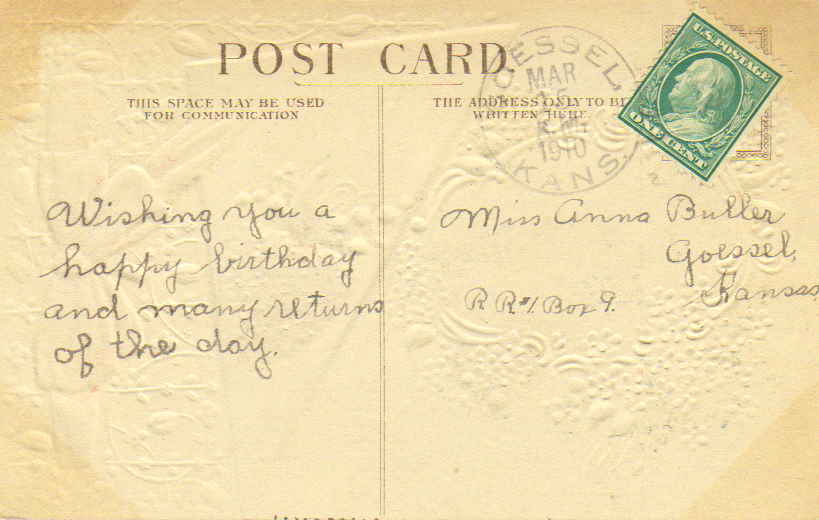 POST CARD
THIS SPACE MAY BE USED
FOR COMMUNICATION
THE ADDRESS ONLY TO BE
WRITTEN HERE
GOESSEL,
MAR
15
1910
KANS.
U.S. POSTAGE
ONE CENT
Wishing you a
happy birthday
and many returns
of the day.
Miss Anna Buller
Goessel,
Kansas
R R #1. Box 9.